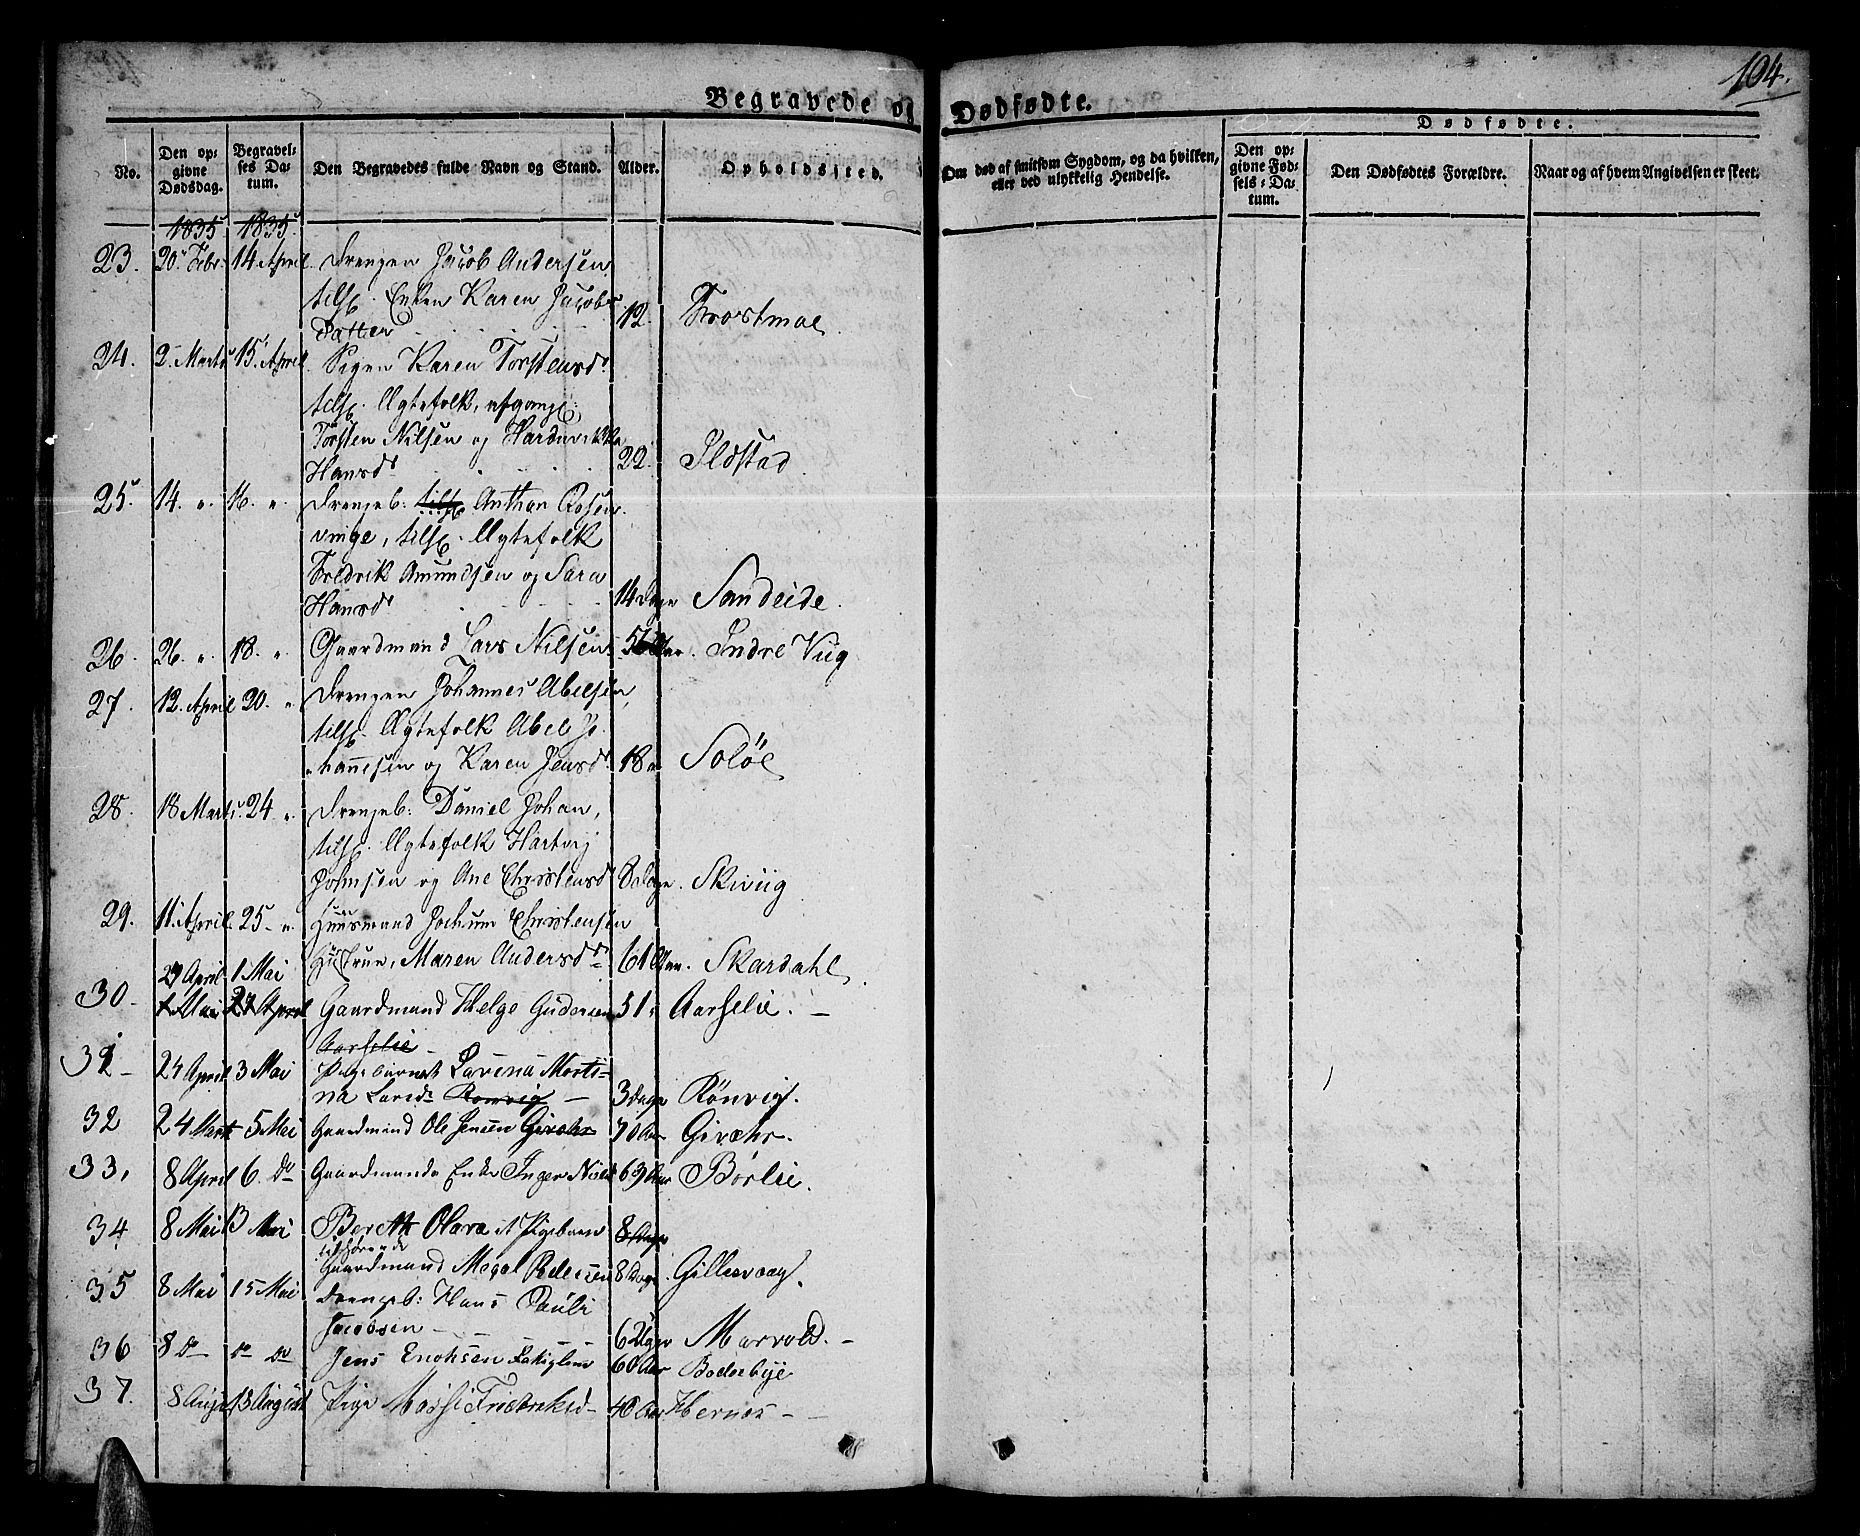 104.
Begravede og Dødfødte.
No.
Den opgivne Dødsdag.
Begravelses Datum.
Den Begravedes fulde Navn og Stand.
Alder.
Opholdssted.
Om død af smitsom Sygdom, og da hvilken, eller ved ulykkelig Hendelse.
Dødfødte.
Den opgivne Fødsels-Datum.
Den Dødfødtes Forældre.
Naar og af hvem Angivelsen er skeet.
1835 1835
23. 20. Febr. 14 April Drengen Jacob Andersen
tilh. Enken Karen Jacobs
Datter 12. Trostmoe
24. 2. Marts 15. April Pigen Karen Torstensd.
tilh. Ægtefolk, afgangl.
Torsten Nilsen og Hardevikka
Hansd. 22. Ildstad
25. 14. " 16. " Drengeb: tilh. Anthon Rosen-
vinge, tilh. Ægtefolk
Fredrik Amundsen og Sara
Hansd. 14 Dage Sandeide.
26. 26. " 18. " Gaardmand Lars Nilsen 56 Aar. Indre Viig
27. 12. April 20. " Drengen Johannes Abelsen,
tilh. Ægtefolk Abel Jo-
hannesen og Karen Jensd. 18 " Soløe
28. 18 Marts. 24 " Drengeb: Daniel Johan,
tilh. Ægtefolk Hartvig
Johnsen og Ane Christensd. 8 Dage. Skviig
29. 11. April. 25 - ". Huusmand Jochum Christensen
Hustrue, Maren Andersd. 61 Aar. Skardahl
27 April 1 Mai
30. 1 Mai 27 April Gaardmand Helge Gudersen 51 " Aarselie. -
Aarselie -
31 - 24 April 3 Mai Pigebarnet Lavena Marti-
na Larsd. Rønvig - 3 Dage Rønvig.
32 24 Mart 5 Mai Gaardmand Ole Jensen Givehr 70 Aar Givæhr.
33, 8 April 6 Do Gaardmands Enke Inger Nilsd 69 Aar Børlie.
34 8 Mai 13 Mai Bereth Olava et Pigebarn 8 Dage
tilhørende
Gaardmand Mogal Pedersen 8 Dage. Gillesvaag.
35 8 Mai 15 Mai Drengeb: Hans Pauli
Jacobsen - 6 Uger Marvold. -
36 8 Do - Do Do Jens Enoksen Fatiglem 60 Aar Bodøebye
37. 8 August 13 August Pige Marsi Fredriksd - 40 Aar Hernes - -